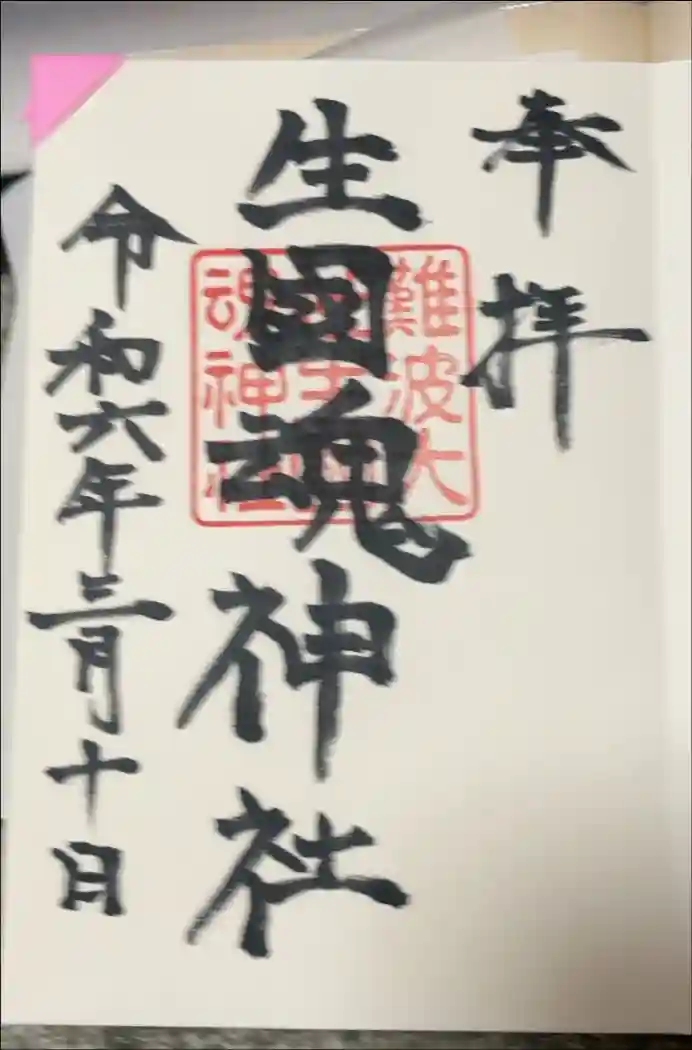 奉拝
生國魂神社
令和六年三月十日
難波大
魂神社